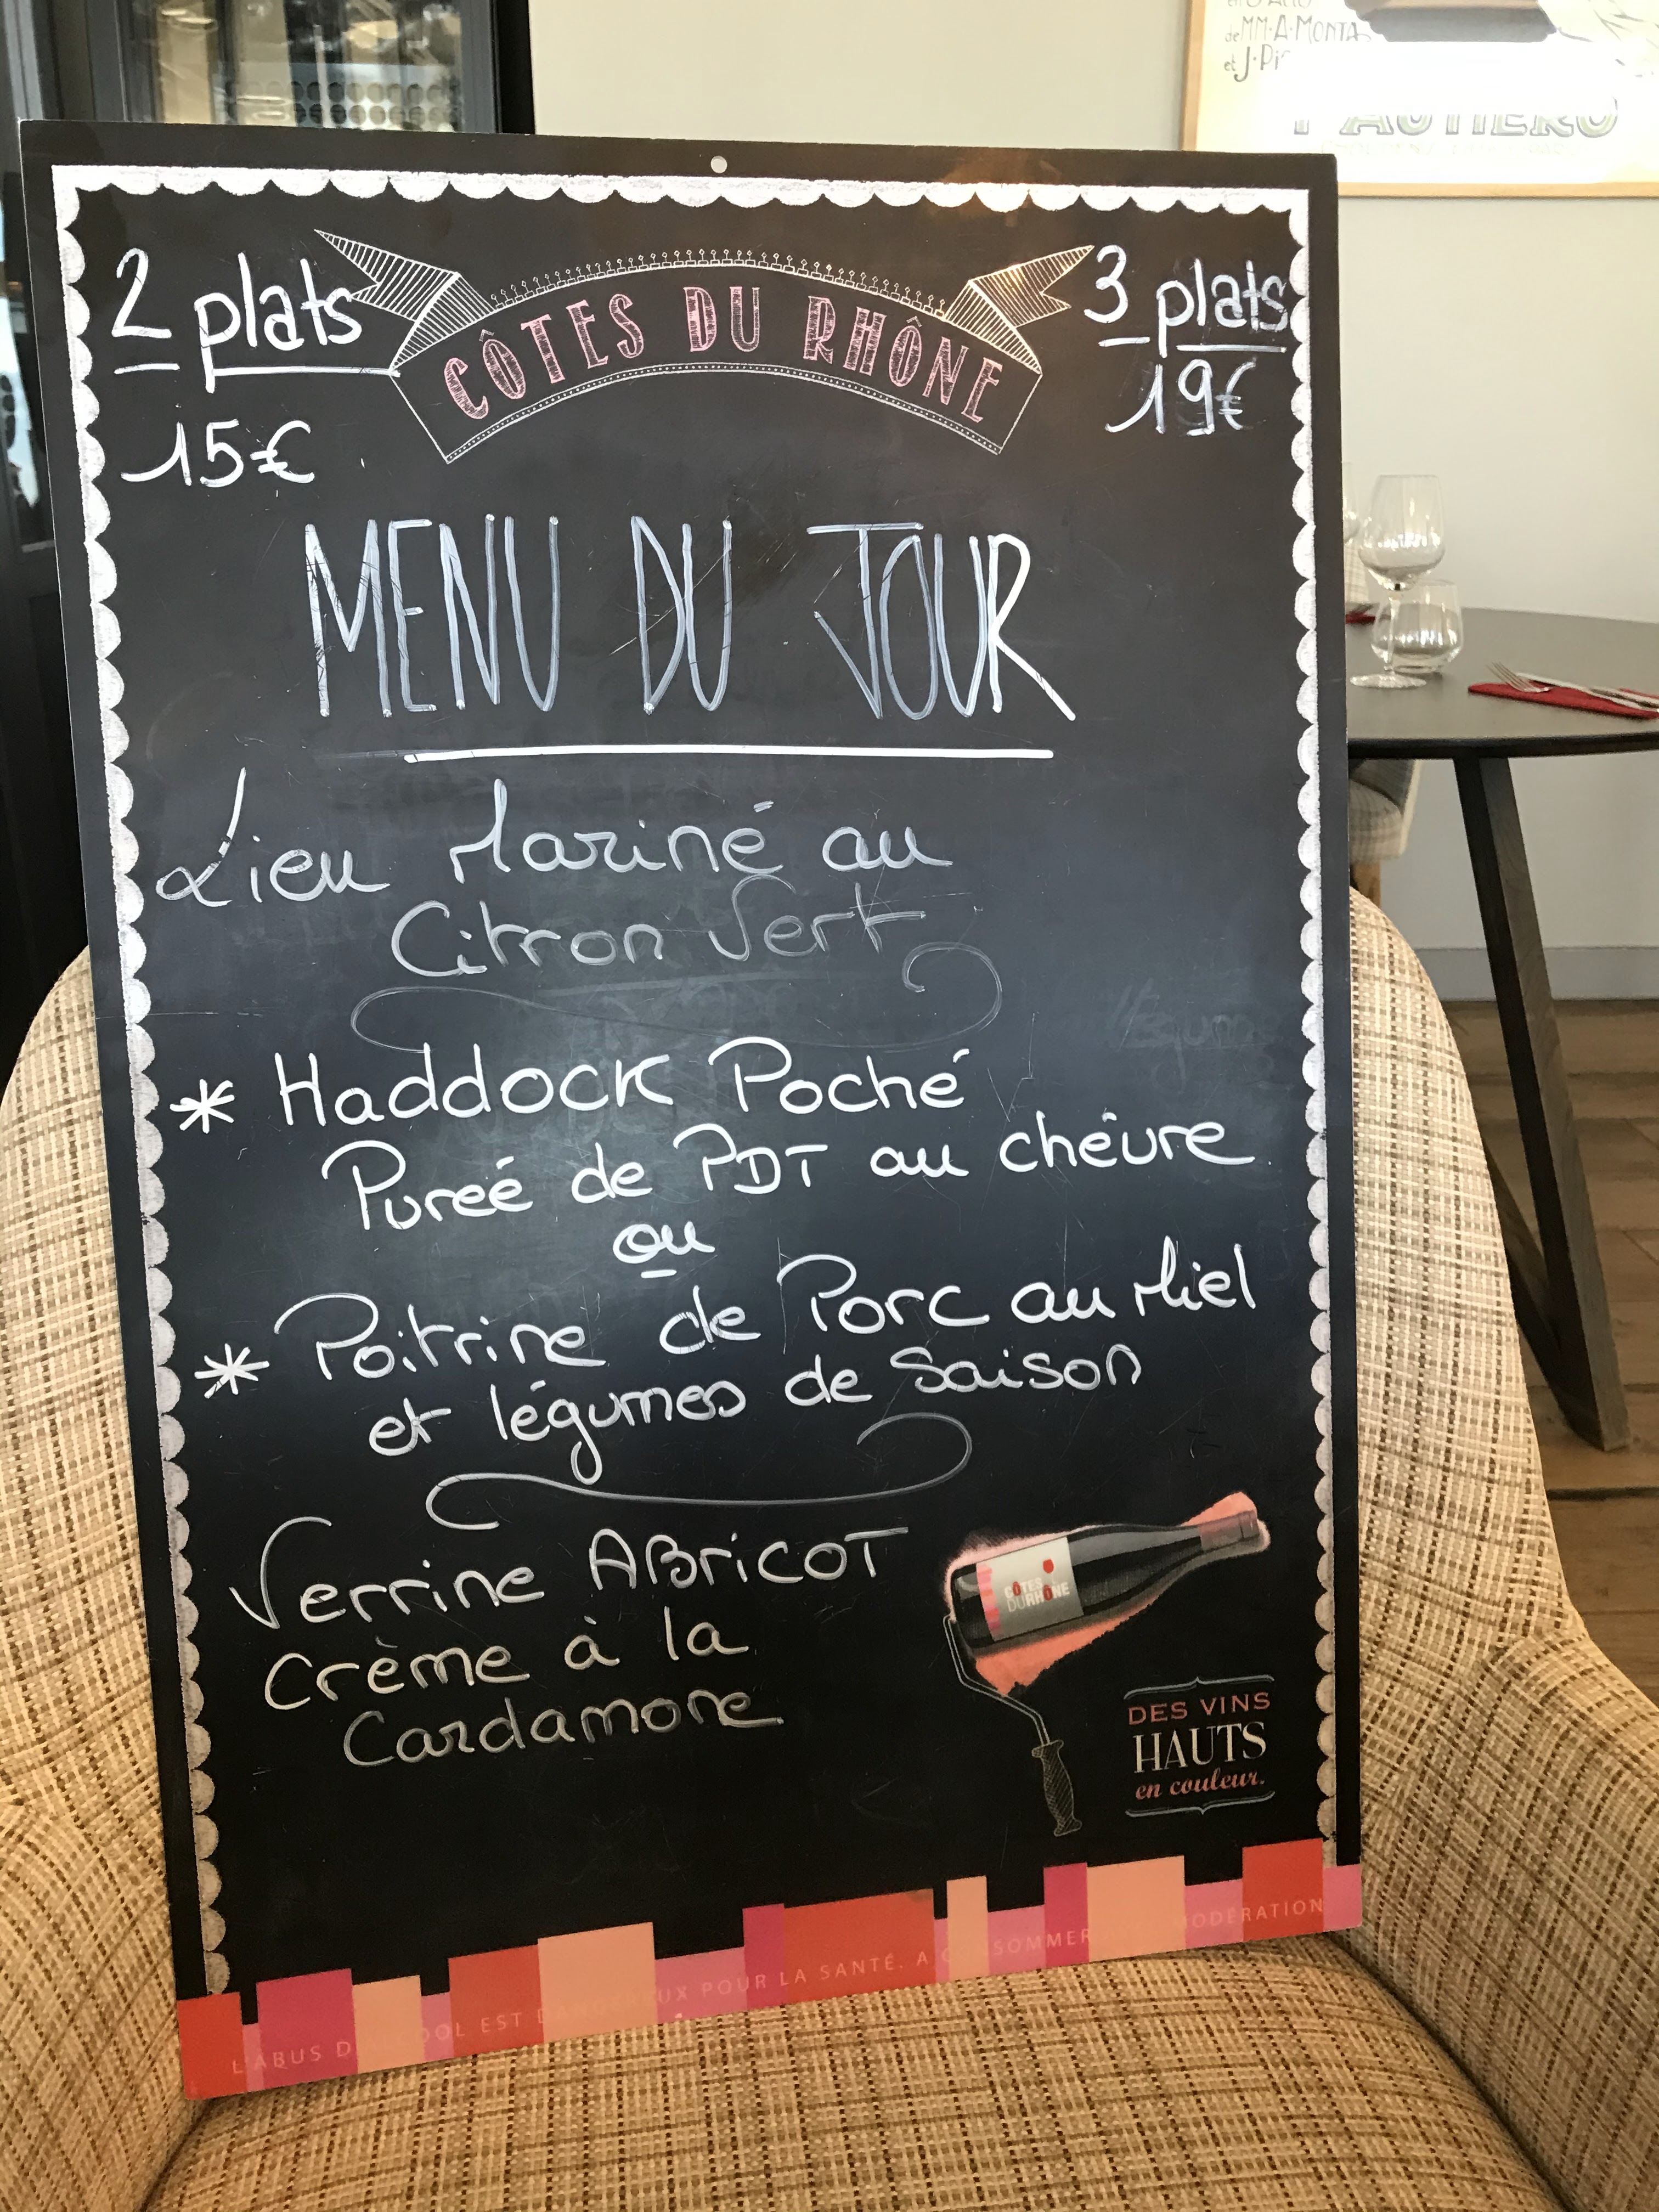 de MM. A. MONTA
et J. Pi
2 plats
CÔTES DU RHÔNE
3 plats
15€
19€
MENU DU JOUR
Lieu Mariné au
Citron Vert
* Haddock Poché
Pureé de PDT au chèvre
ou
* Poitrine de Porc au Miel
et légumes de Saison
Verrine ABricoT
Crème à la
Cardamone
CÔTES
DU RHÔNE
DES VINS
HAUTS
en couleur.
L'ABUS D'ALCOOL EST DANGEREUX POUR LA SANTÉ. A CONSOMMER MODERATION